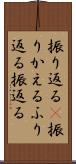 振り返る 振
りかえるふり
返る振返る